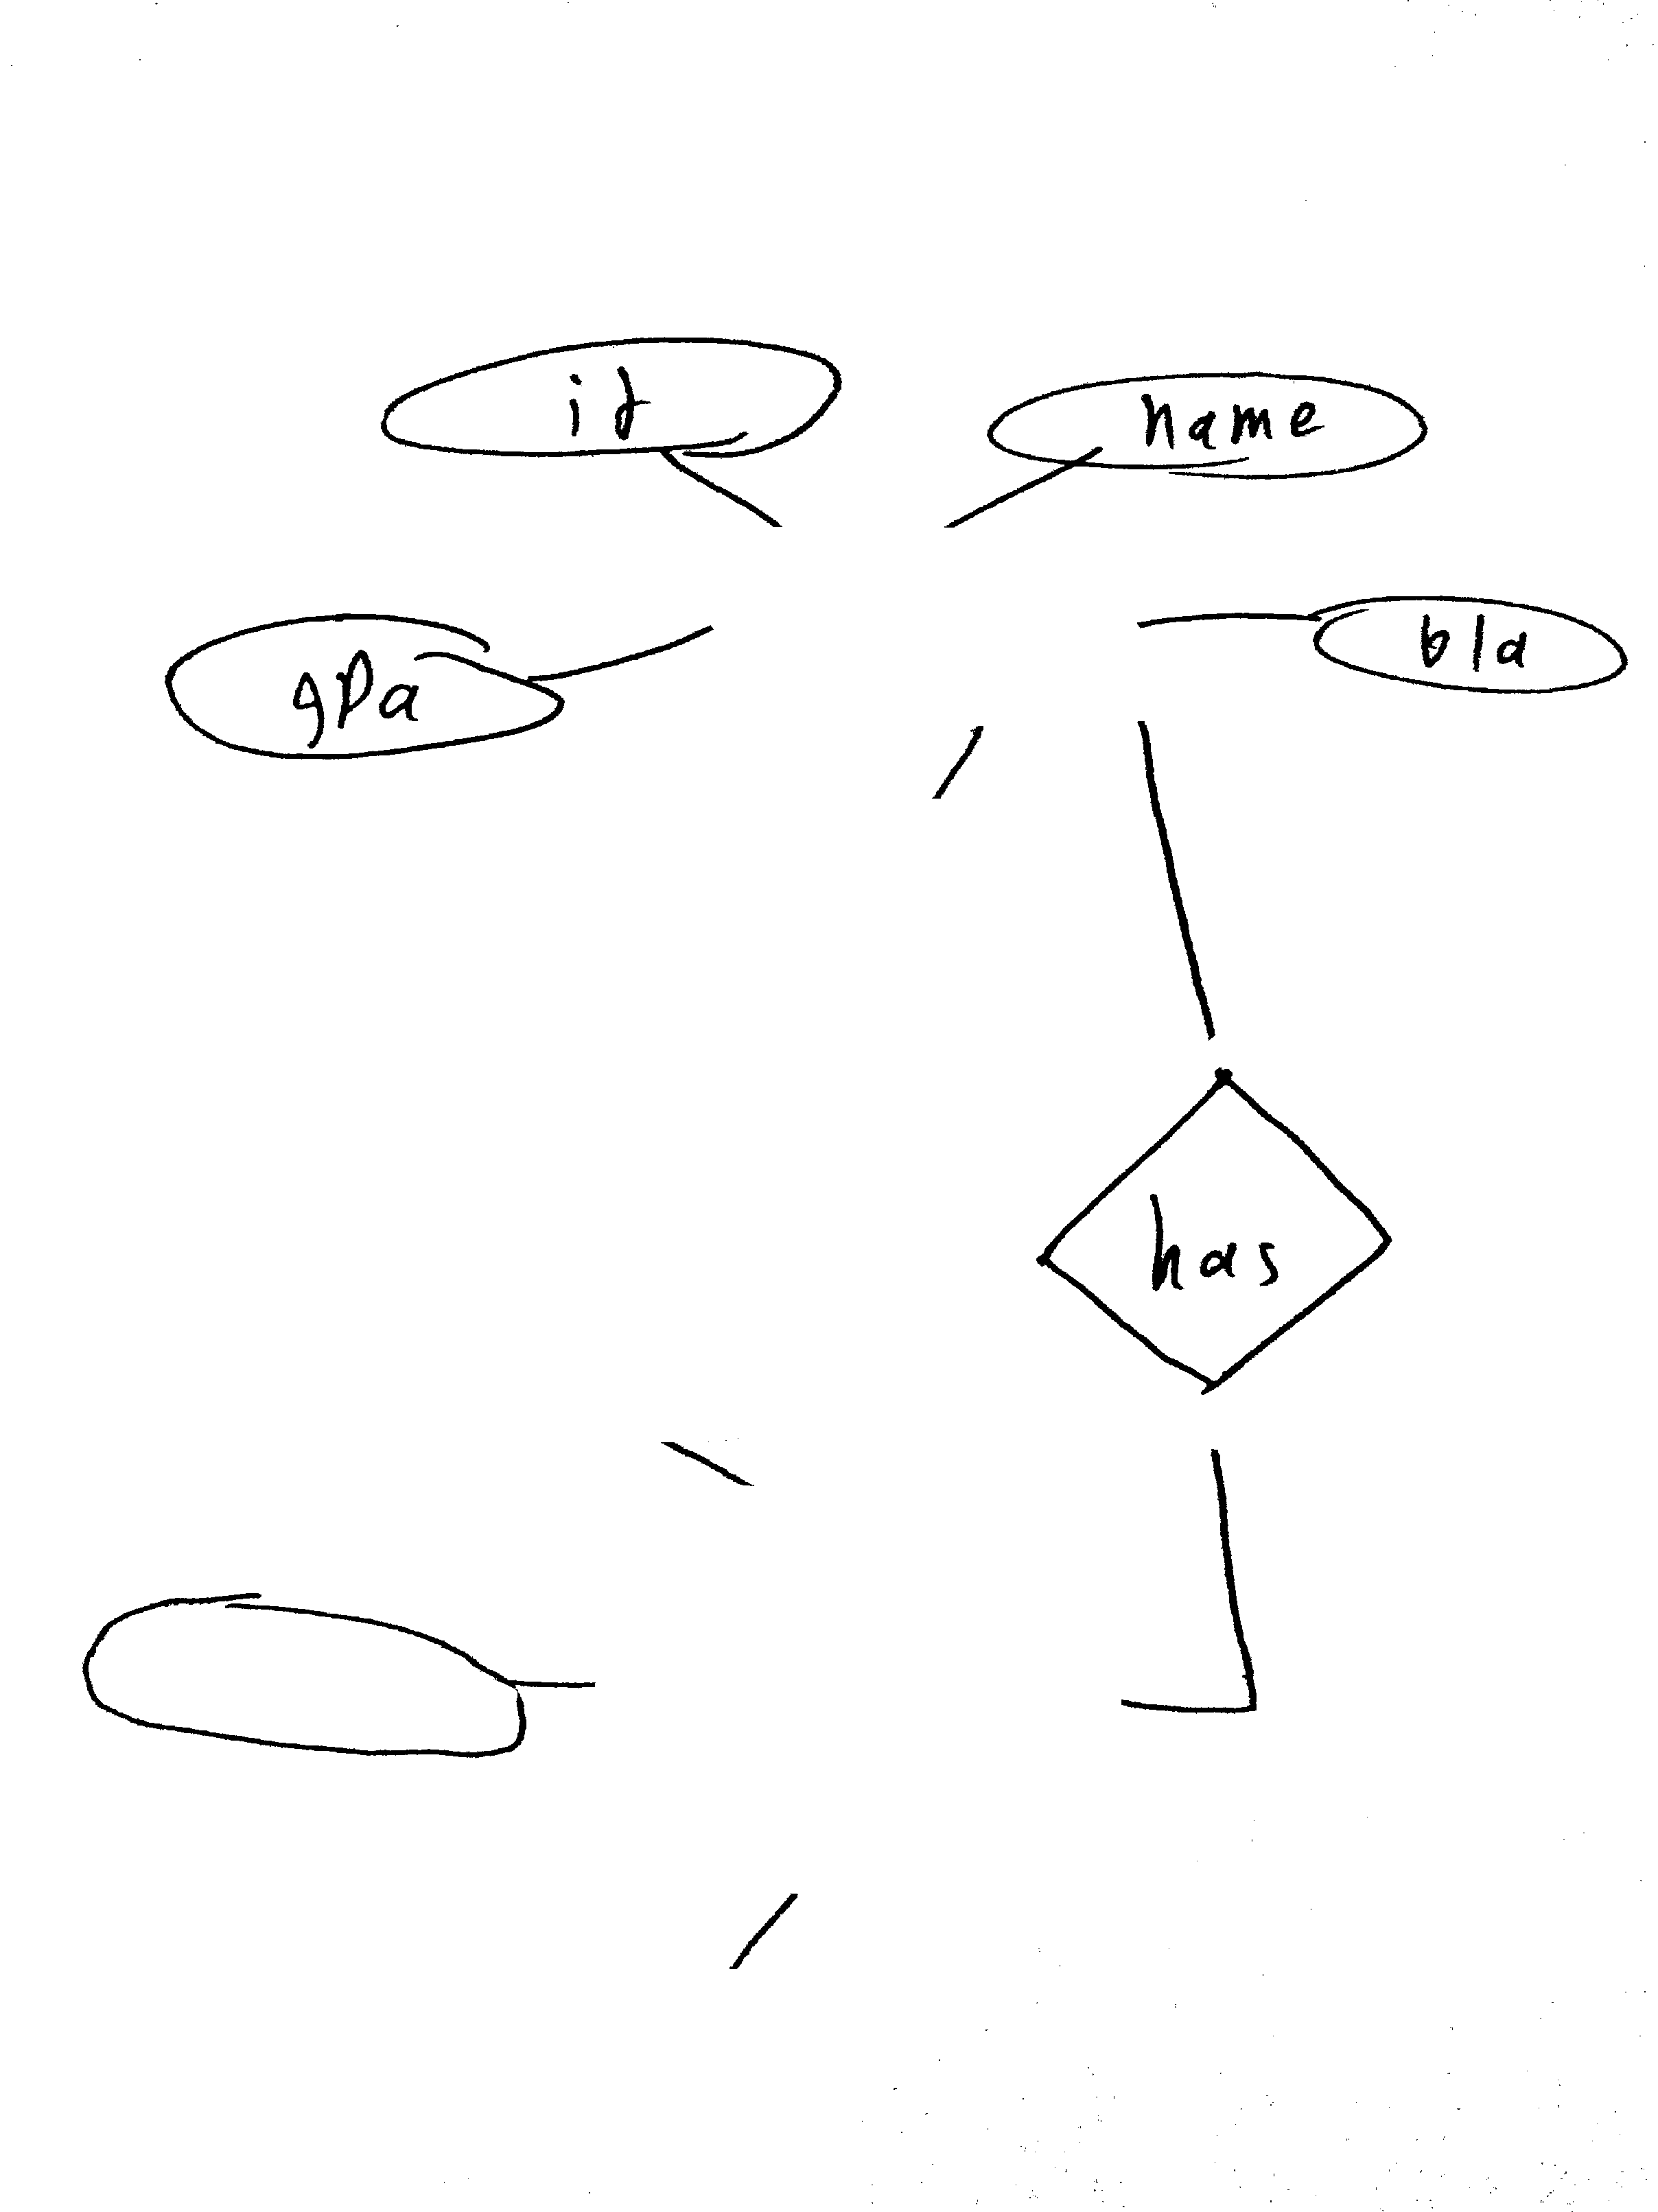 id
name
gpa
bla
has